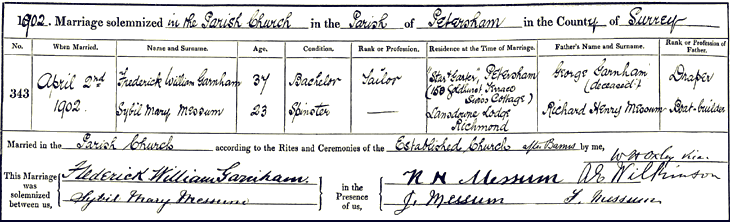 1902. Marriage solemnized in the Parish Church in the Parish of Petersham in the County of Surrey
No. When Married. Name and Surname. Age. Condition. Rank or Profession. Residence at the Time of Marriage. Father's Name and Surname. Rank or Profession of Father.
343 April 2nd 1902. Frederick William Garnham 37 Bachelor Tailor "Star & Garter", Petersham (153 Goldhurst Terrace Swiss Cottage) George Garnham (deceased) Draper
Sybil Mary Messum 23 Spinster — Lansdowne Lodge Richmond Richard Henry Messum Boat-builder
Married in the Parish Church according to the Rites and Ceremonies of the Established Church after Banns by me,
W H Oxley Vicar.
This Marriage was solemnized between us, Frederick William Garnham. Sybil Mary Messum in the Presence of us, R H Messum A E Wilkinson
J. Messum F. Messum